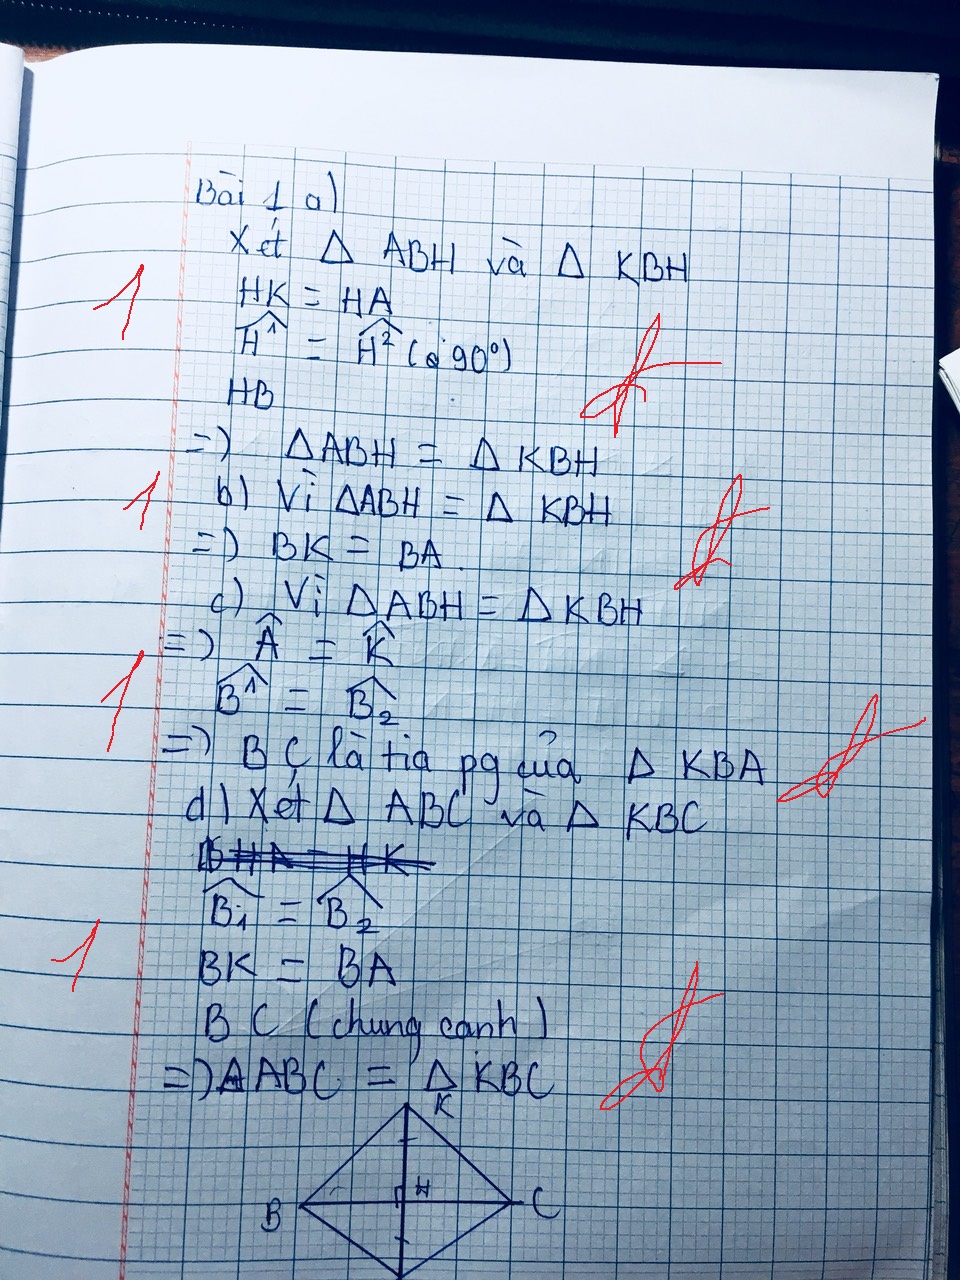 Bài 1 a)
Xét Δ ABH và Δ KBH
1
HK = HA
Ĥ1 = Ĥ2 (= 90°)
HB
=) ΔABH = Δ KBH
1
b) Vì ΔABH = Δ KBH
=) BK = BA.
c) Vì ΔABH = ΔKBH
=) Â = K̂
1
B̂1 = B̂2
=) BC là tia pg của Δ KBA
d) Xét Δ ABC và Δ KBC
B̂1 = B̂2
1
BK = BA
BC (chung cạnh)
=) ΔABC = Δ KBC
K
H
B
C